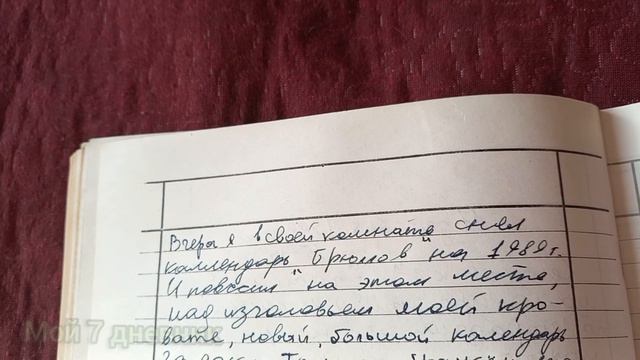 Вчера я в своей комнате снял
каллендарь "Брюсов" на 1989 г.
И повесил на этом месте,
над изголовьем моей кро-
вати, новый, большой календарь
Мой 7 дневник